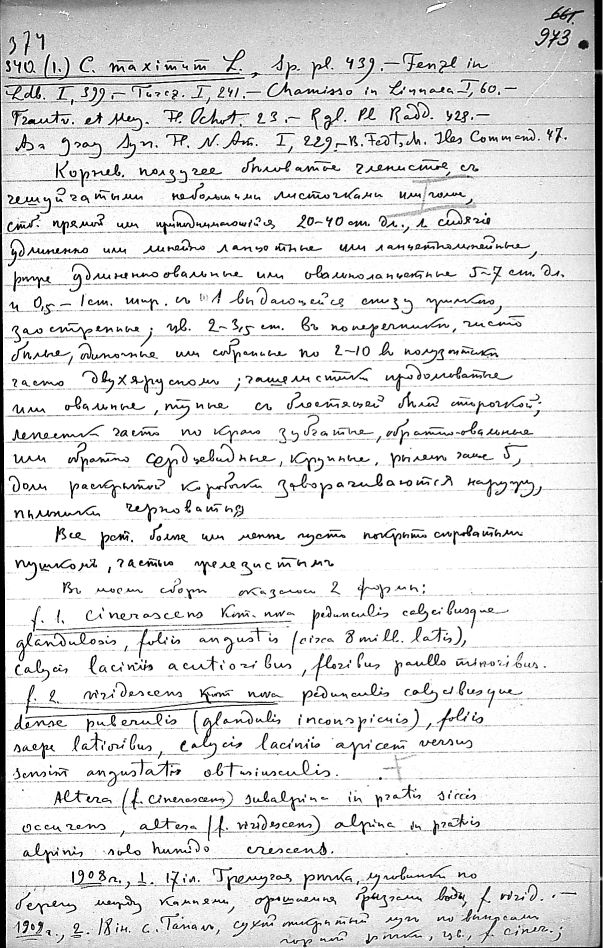 374
661.
973.
340 (1.) C. maximum L., Sp. pl. 439. – Fenzl in
Ldb. I, 399. – Turcz. I, 241. – Chamisso in Linnaea I, 60. –
Trautv. et Mey. Fl. Ochot. 23. – Rgl. Pl. Radd. 428. –
Asa Gray Syn. Fl. N. Am. I, 229. – B. Fedt. Fl. Iles Command. 47.
Корнев. ползучее беловатое членистое, съ
чешуйчатыми небольшими листочками или голое,
ств. прямой или приподнимающійся 20–40 cm. дл., л. сидячіе
удлиненно или линейно ланцетные или ланцетнолинейные,
рѣже удлиненноовальные или овальноланцетные 5–7 cm. дл.
и 0,5 – 1 cm. шир. съ 1 выдающейся снизу жилкою,
заостренные; цв. 2–3,5 cm. въ поперечникѣ, чисто
бѣлые, одиночные или собранные по 2–10 въ полузонтики
часто двухярусномъ; чашелистики продолговатые
или овальные, тупые съ блестящей бѣлой оторочкой;
лепестки часто по краю зубчатые, обратно-овальные
или обратно сердцевидные, крупные, рылецъ чаще 5,
доли раскрытой коробочки заворачиваются наружу,
пыльники черноватые
Все раст. болѣе или менѣе густо покрыто сѣроватымъ
пушкомъ, частью железистымъ
Въ моемъ сборѣ оказалось 2 формы:
f. 1. cinerascens Kom. nova pedunculis calycibusque
glandulosis, foliis angustis (circa 8 mill. latis),
calycis laciniis acutioribus, floribus paullo minoribus.
f. 2. viridescens Kom nova pedunculis calycibusque
dense puberulis (glandulis inconspicuis), foliis
saepe latioribus, calycis laciniis apicem versus
sensim angustatis obtusiusculis.
Altera (f. cinerascens) subalpina in pratis siccis
occurens, altera (f. viridescens) alpina in pratis
alpinis solo humido crescens.
1908 г., 1. 17 іл. Гремучая рѣчка, луговинки по
берегу между камнями, орошенныя брызгами воды, f. virid. –
1909 г., 2. 18 іюн. с. Ганалъ, сухой открытый лугъ по
горной рѣчки, цв., f. ciner.;